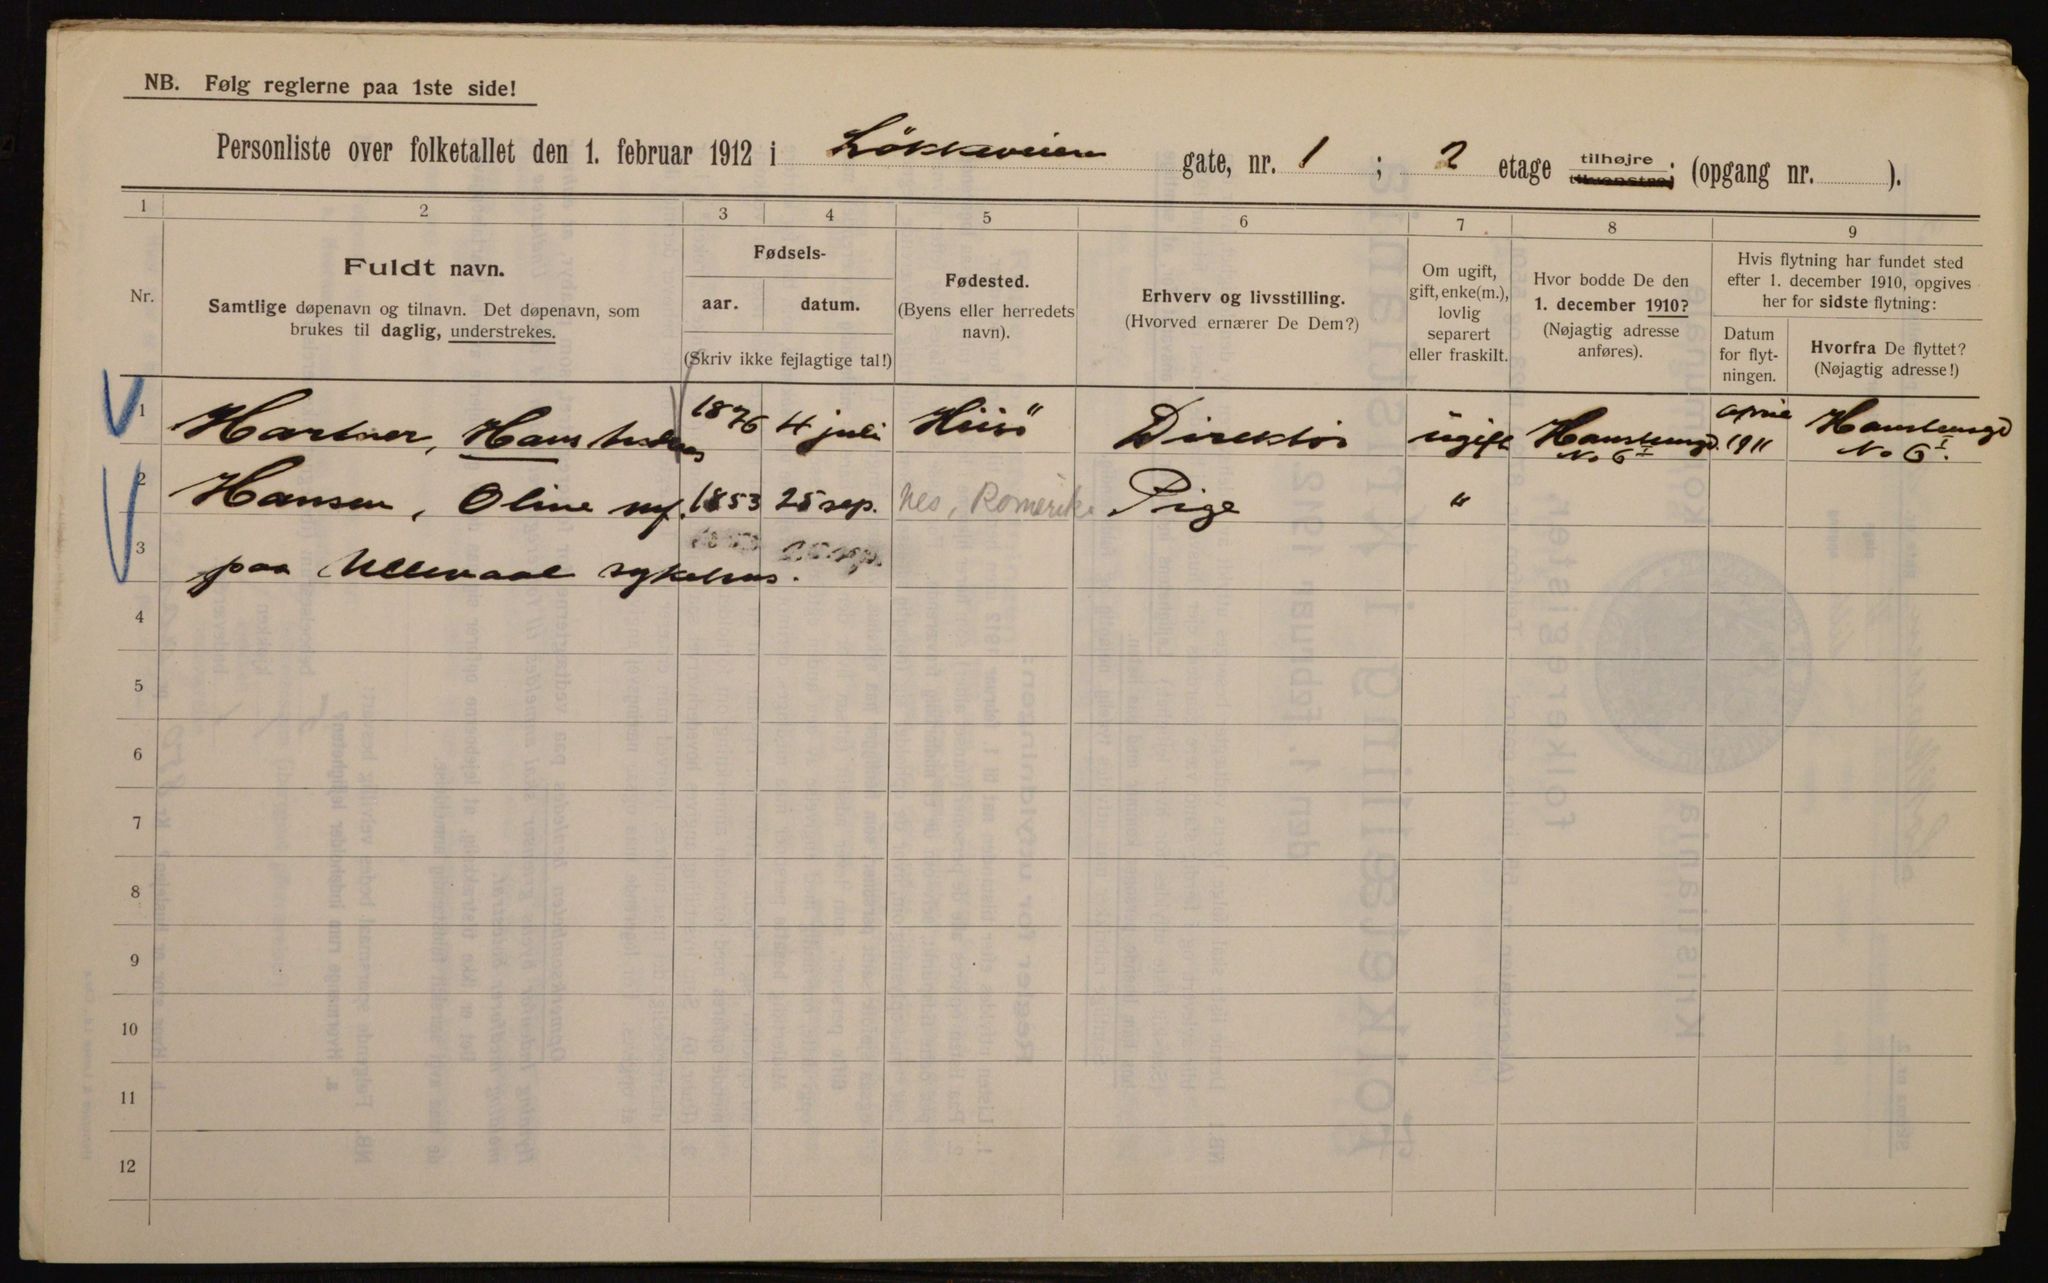 NB. Følg reglerne paa 1ste side!
Personliste over folketallet den 1. februar 1912 i Løkkeveien gate, nr. 1 ; 2 etage tilhøjre tilvenstre; (opgang nr. ).
1 2 3 4 5 6 7 8 9
Nr.
Fuldt navn.
Samtlige døpenavn og tilnavn. Det døpenavn, som
brukes til daglig, understrekes.
Fødsels-
aar. datum.
(Skriv ikke fejlagtige tal!)
Fødested.
(Byens eller herredets
navn).
Erhverv og livsstilling.
(Hvorved ernærer De Dem?)
Om ugift,
gift, enke(m.),
lovlig
separert
eller fraskilt.
Hvor bodde De den
1. december 1910?
(Nøjagtig adresse
anføres).
Hvis flytning har fundet sted
efter 1. december 1910, opgives
her for sidste flytning:
Datum
for flyt-
ningen.
Hvorfra De flyttet?
(Nøjagtig adresse!)
1 Hans 1876 4 juli Direktör ugift No 6 I april 1911 No 6 I.
2 Hansen, Oline 1853 25 sep. Nes, Romerike Pige "
3 paa Ullevaal sykehus.
4
5
6
7
8
9
10
11
12